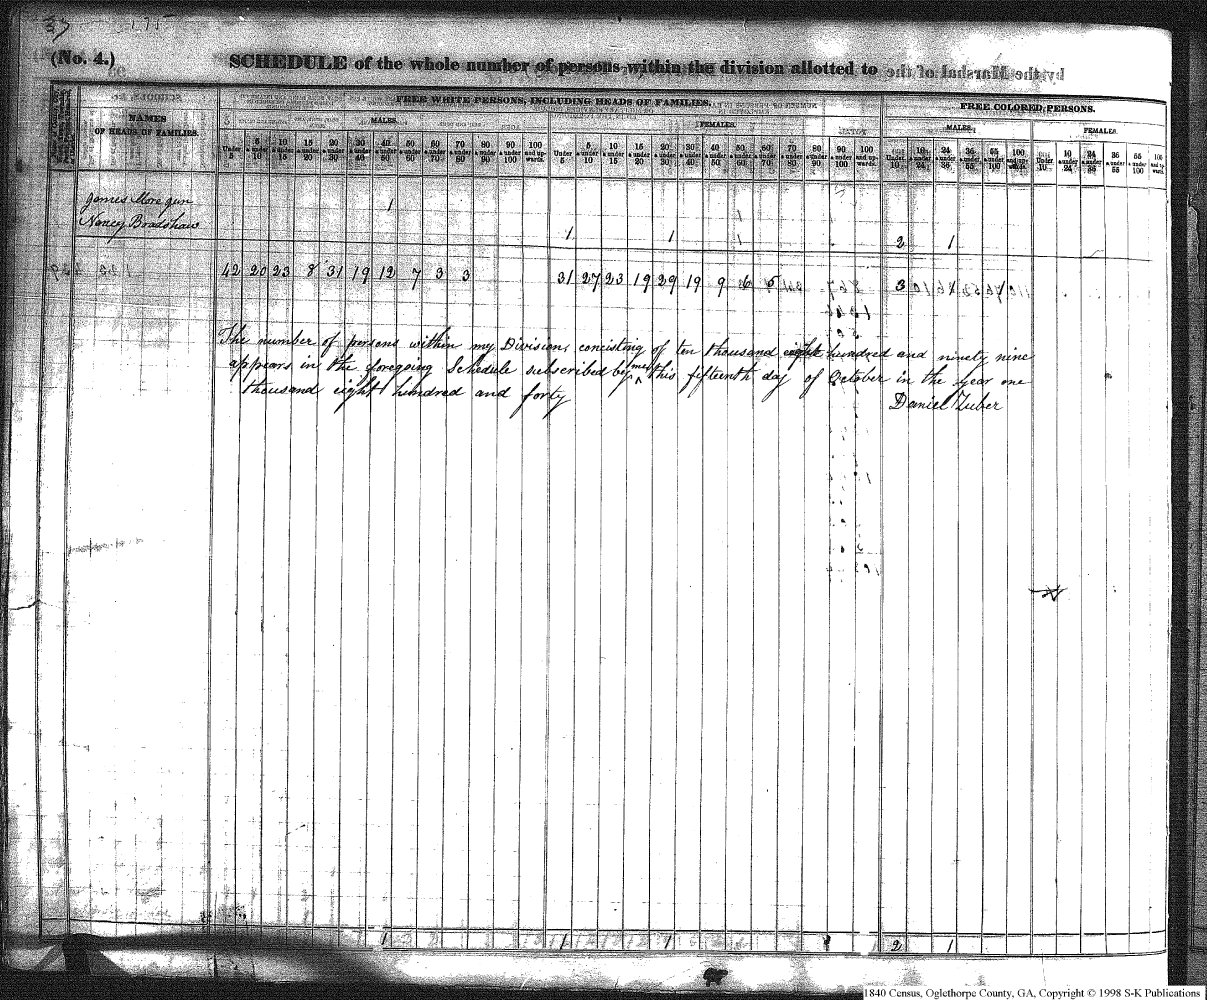 37 175
(No. 4.)
SCHEDULE of the whole number of persons within the division allotted to
by the Marshal of the
FREE WHITE PERSONS, INCLUDING HEADS OF FAMILIES.
FREE COLORED PERSONS.
NAMES
OF HEADS OF FAMILIES.
MALES. FEMALES. MALES. FEMALES.
Under 5 5 & under 10 10 & under 15 15 & under 20 20 & under 30 30 & under 40 40 & under 50 50 & under 60 60 & under 70 70 & under 80 80 & under 90 90 & under 100 100 and upwards. Under 5 5 & under 10 10 & under 15 15 & under 20 20 & under 30 30 & under 40 40 & under 50 50 & under 60 60 & under 70 70 & under 80 80 & under 90 90 & under 100 100 and upwards. Under 10 10 & under 24 24 & under 36 36 & under 55 55 & under 100 100 and upwards. Under 10 10 & under 24 24 & under 36 36 & under 55 55 & under 100 100 and upwards.
James 1
Nancy Bradshaw 1 1 2 1
42 20 23 8 31 19 12 7 3 3 31 27 23 19 29 19 9 6 5 3
The number of persons within my Division, concisting of ten thousand eight hundred and ninety nine
appears in the foregoing Schedule subscribed by me this fifteenth day of October in the year one
thousand eight hundred and forty Daniel Zuber
1 1 1 2 1
1840 Census, Oglethorpe County, GA, Copyright © 1998 S-K Publications